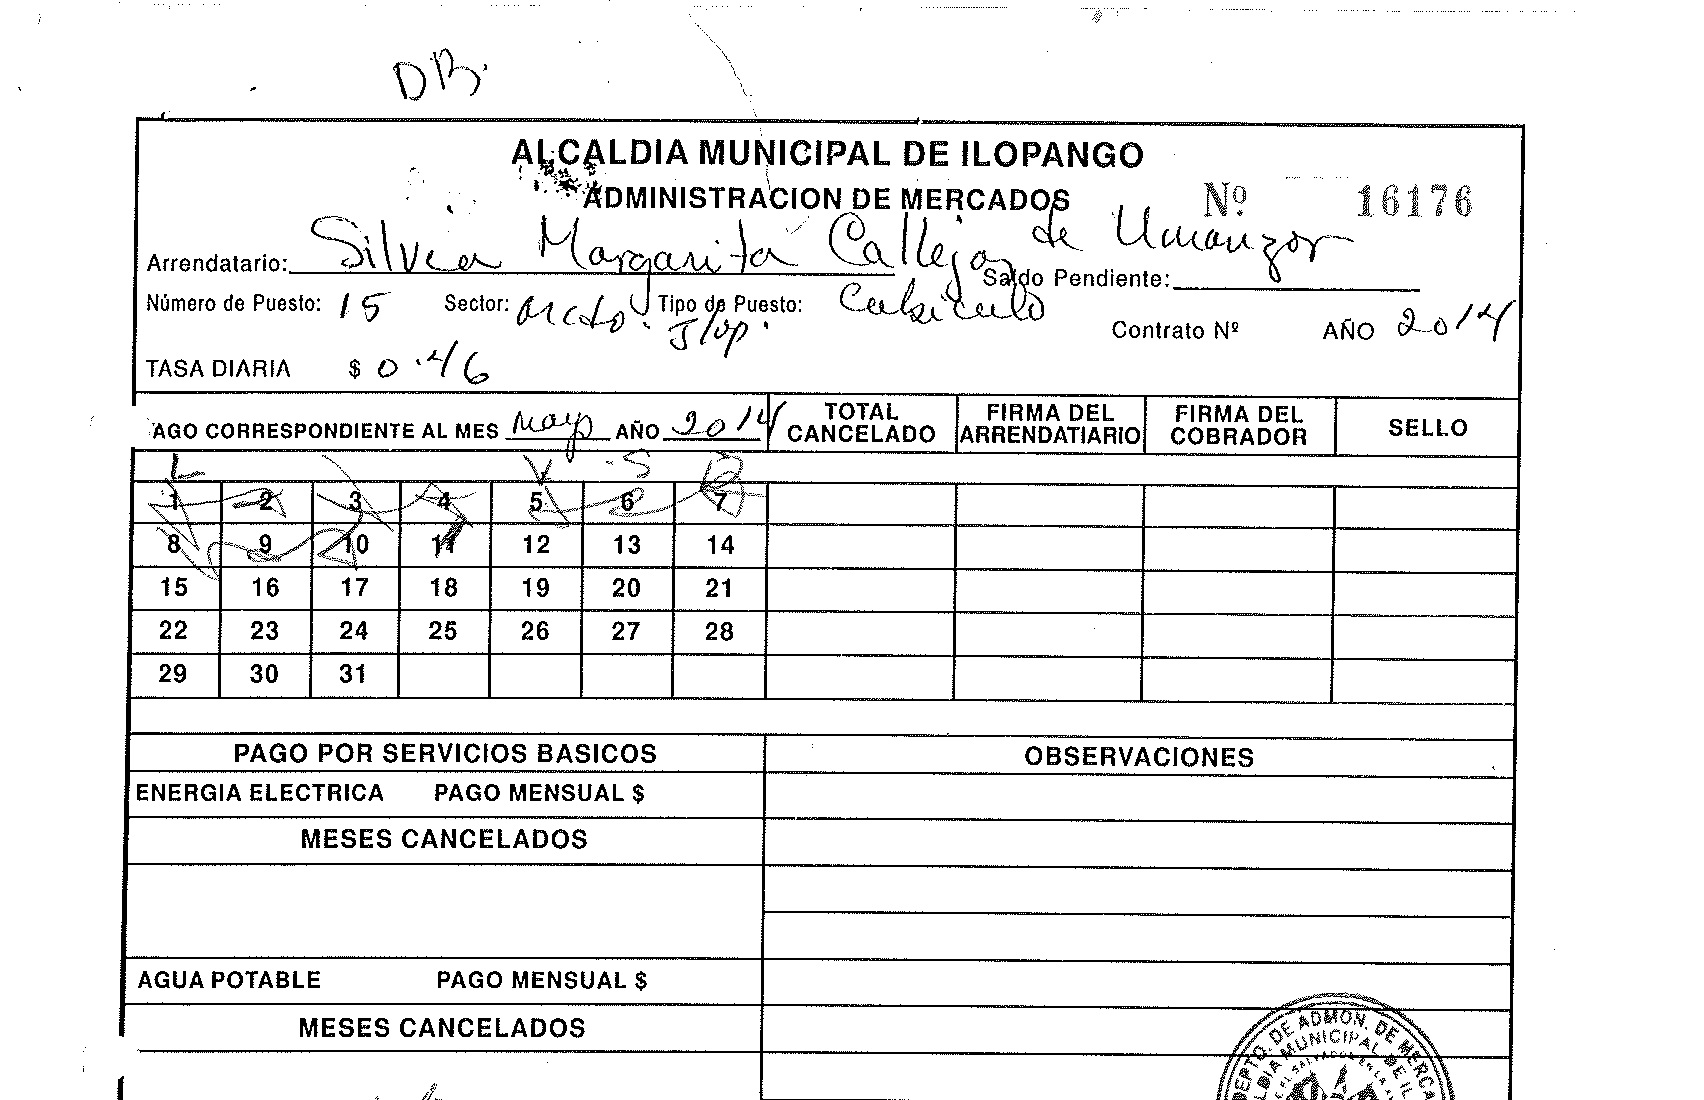 DB.
ALCALDIA MUNICIPAL DE ILOPANGO
ADMINISTRACION DE MERCADOS Nº 16176
Arrendatario: Silvia Margarita Callejas de Umanzor Saldo Pendiente:
Número de Puesto: 15 Sector: Mcdo. Ilop. Tipo de Puesto: Cubiculo
Contrato Nº AÑO 2014
TASA DIARIA $ 0.46
AGO CORRESPONDIENTE AL MES Mayo AÑO 2014 TOTAL CANCELADO FIRMA DEL ARRENDATIARIO FIRMA DEL COBRADOR SELLO
L V S D
1 2 3 4 5 6 7
8 9 10 11 12 13 14
15 16 17 18 19 20 21
22 23 24 25 26 27 28
29 30 31
PAGO POR SERVICIOS BASICOS OBSERVACIONES
ENERGIA ELECTRICA PAGO MENSUAL $
MESES CANCELADOS
AGUA POTABLE PAGO MENSUAL $
MESES CANCELADOS
DEPTO. DE ADMON. DE MERCA
DIA MUNICIPAL DE IL
EL SALVADOR EN LA